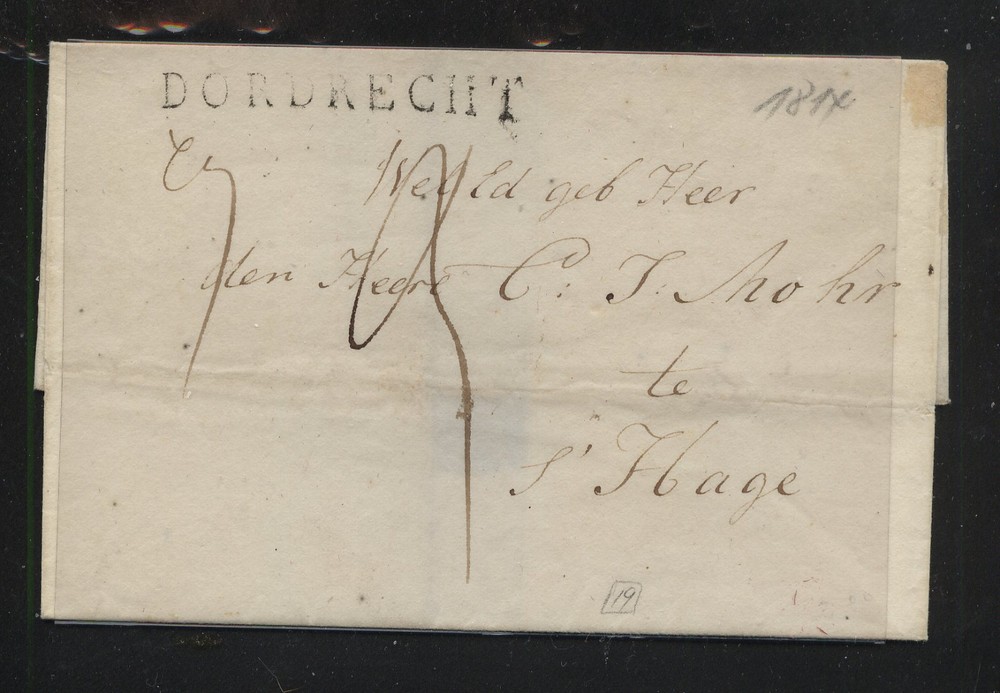 DORDRECHT
geb Heer
den Heere C: J: Mohr
te
s'Hage
19